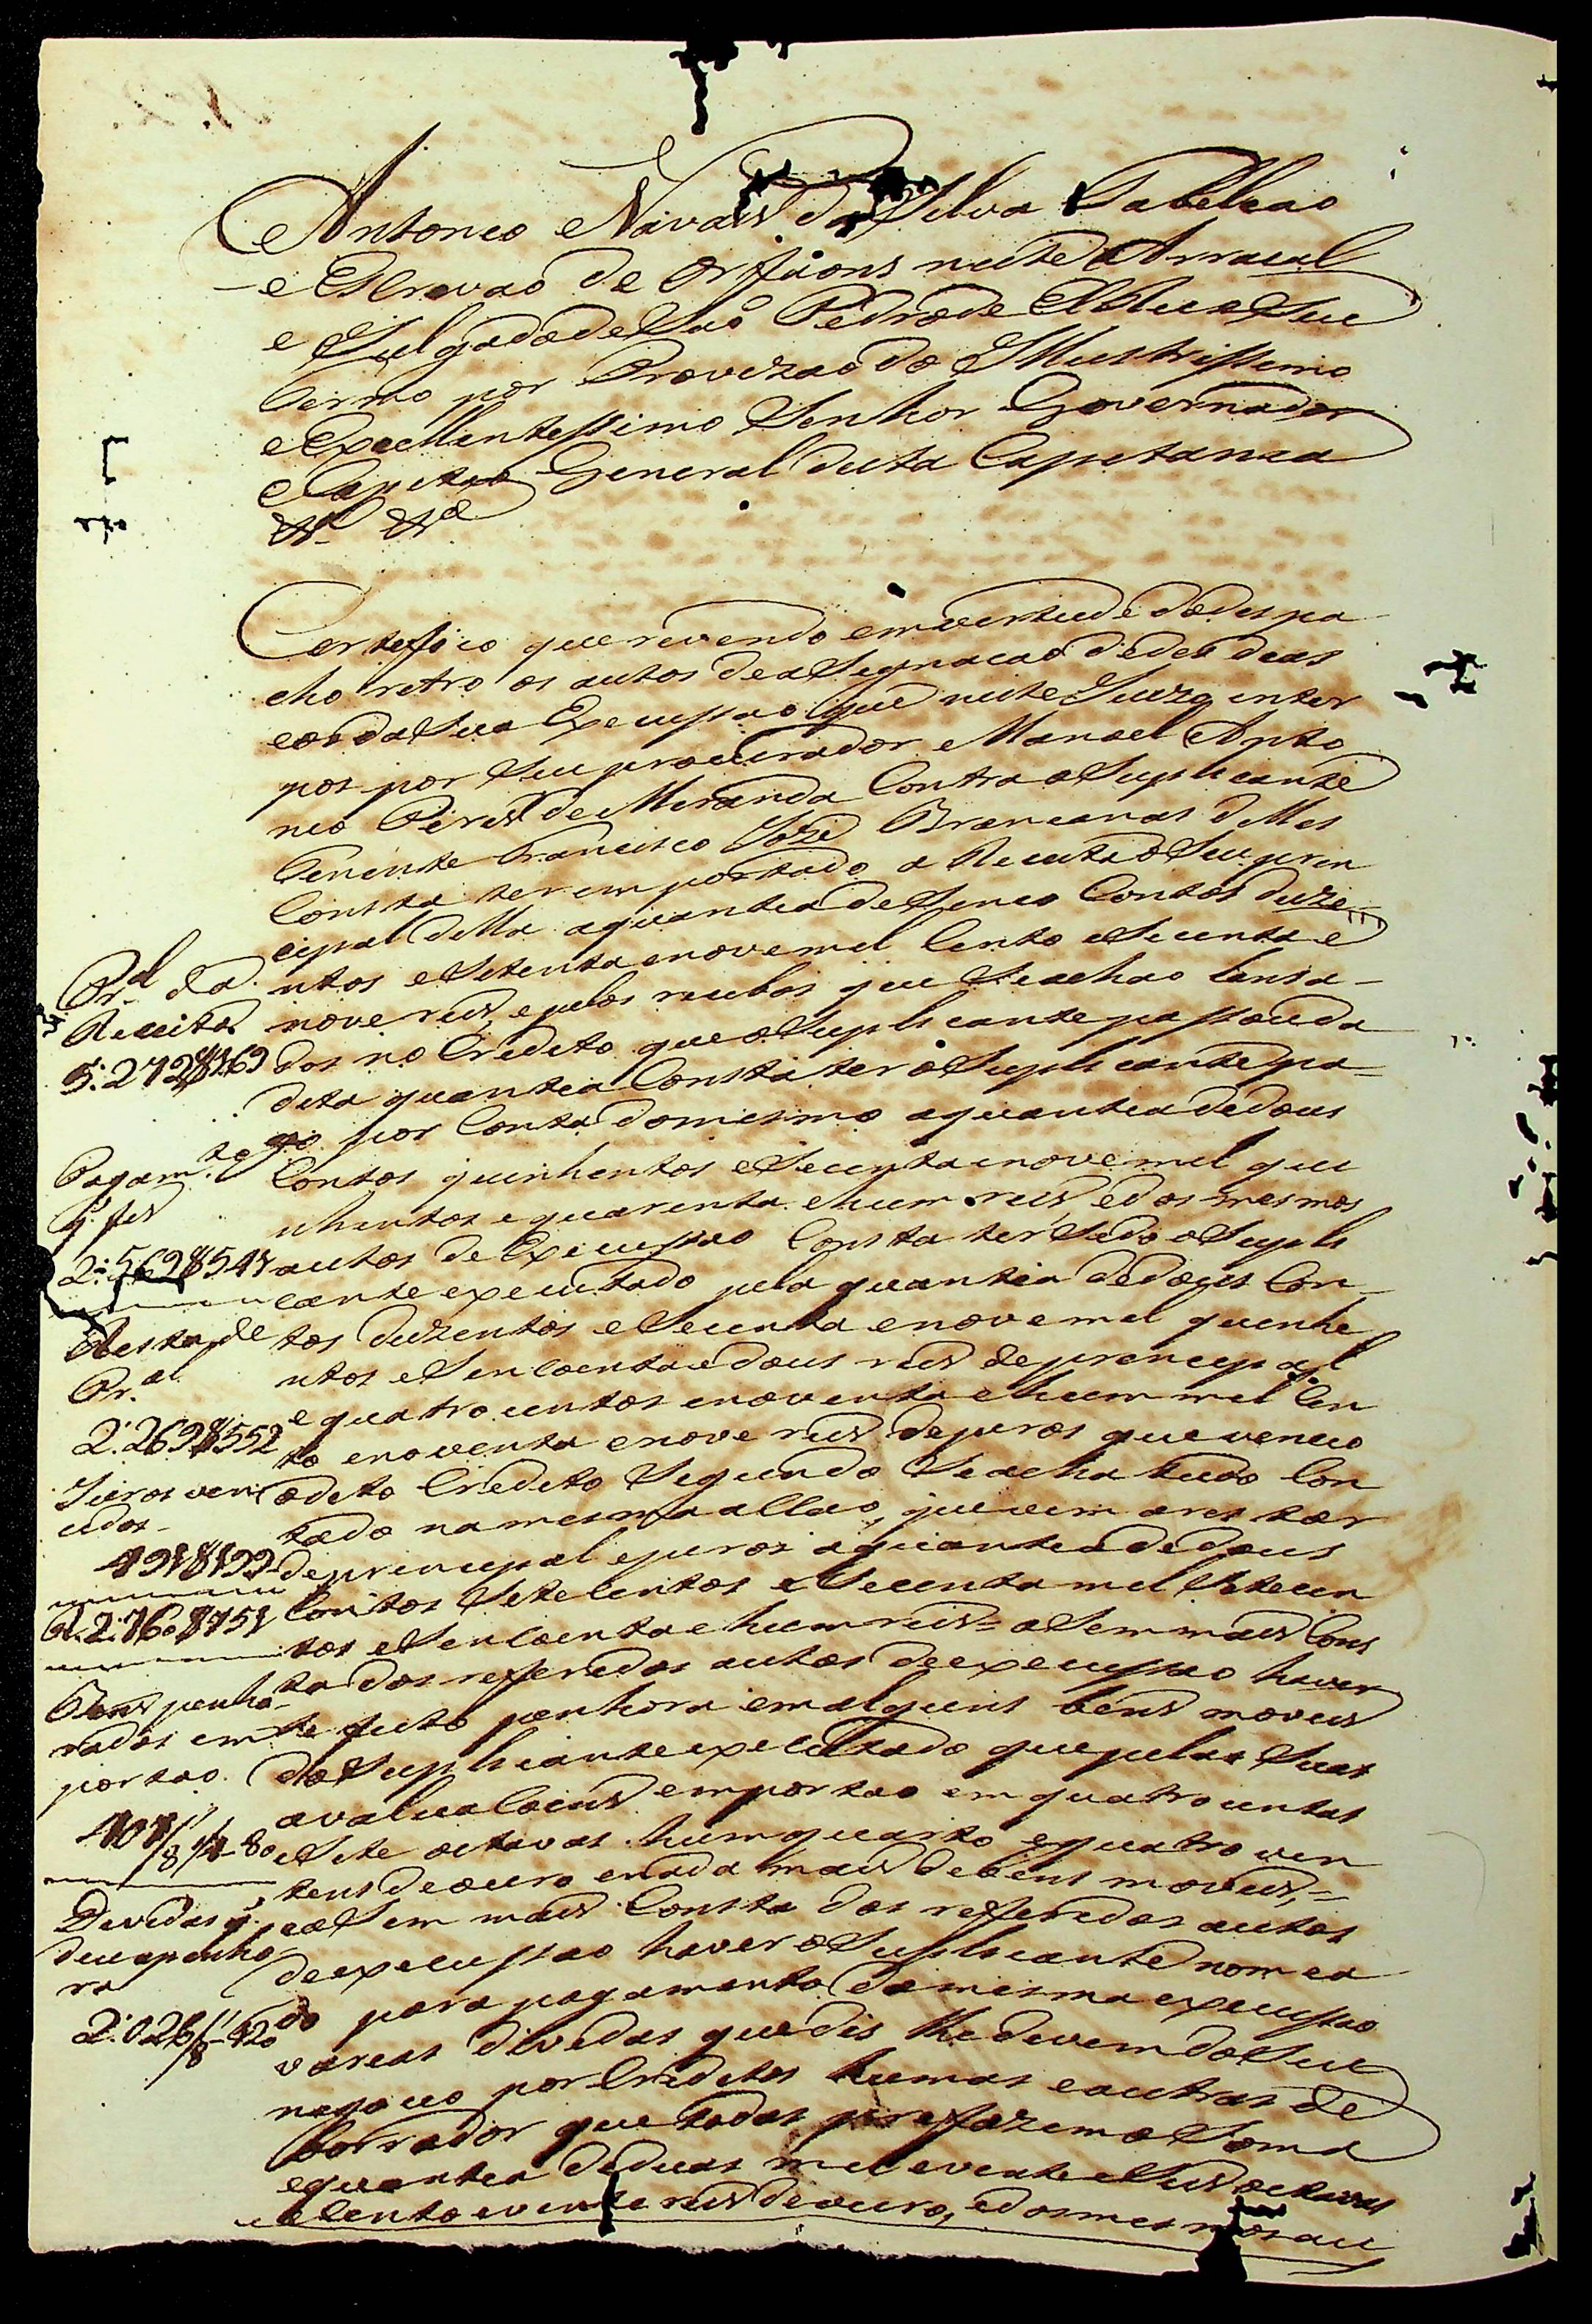 Antonio Navais da Silva Tabeleao
e Escrevao de Orfãons neste Arraial
e Julgado de Sao Pedro de El Rei e Seu
termo por Provizao do Illustrissimo
e Excellentessimo Senhor Governador
e Capitao General desta Capetania
&ª &ª
Certefico que revendo em vertude do despa
cho retro os autos de aSegnacao de des dias
e os da Sua Execussao que neste Juizo inter
pos por Seu procurador Manoel Anto
nio Peres de Meranda Contra o Suplicante
Tenente Francisco José Brancanas delles
Consta ter emportado a Receita do Seu prin
cipal della a quantia de Sinco Contos duze
ntos e Setenta e nove mil Cento e Secenta e
nove reis, e pelos recibos que Se achao lansa-
dos no Credeto que o Suplicante passou da
deta quantia Consta ter o Suplicante pa-
go por Conta do mesmo a quantia de dous
Contos quinhentos e Secenta e nove mil qui
nhentos e quarenta e hum reis, e dos mesmos
autos de Execussao Consta ter Sedo o Supli
cante executado pela quantia de dois Con-
tos duzentos e Secenta e nove mil quinhe
ntos e Sencoenta e dous reis de prencipal
e quatro centos e noventa e hum mil Cen
to e noventa e nove reis de juros que venceo
o deto Credeto Segundo Se acha tudo Con
tado na mesma allao, que vem a restar
de prencipal e juros a quantia de dous
Contos Setecentos e Secenta mil Setecen
tos e Sencoenta e hum reis = aSem mais Cons
ta dos refferedos autos de execussao haver
se feito penhora em alguns bens moveis
do Suplicante executado que pelas Suas
avaluacoens emportao em quatro centas
e Sete oitavas hum quarto e quatro ven
tens de ouro e nada mais de bens moveis,=
e aSem mais Consta dos refferedos autos
de execussao haver o Suplicante nomea
do para pagamento da mesma execussao
vareas devedas que dis lhe devem do Seu
negocio por Credetos humas e outras de
borrador que todas prefazem a Soma
e quantia de duas mil e vente e Seis oitavas
e Cento e vente reis de ouro, e dos mesmos au
Pr.al da
Receita
5:279$169
Pagam.to
q. fes
2:569$541
Resta de
Pr.al
2:269$552
Juros ven
cidos
491$199
R. 2:760$751
Bens penho
rados em
portao.
407/8 1/4 - 80
Devedas q.
deu a penho
ra
2:026/8 - 120